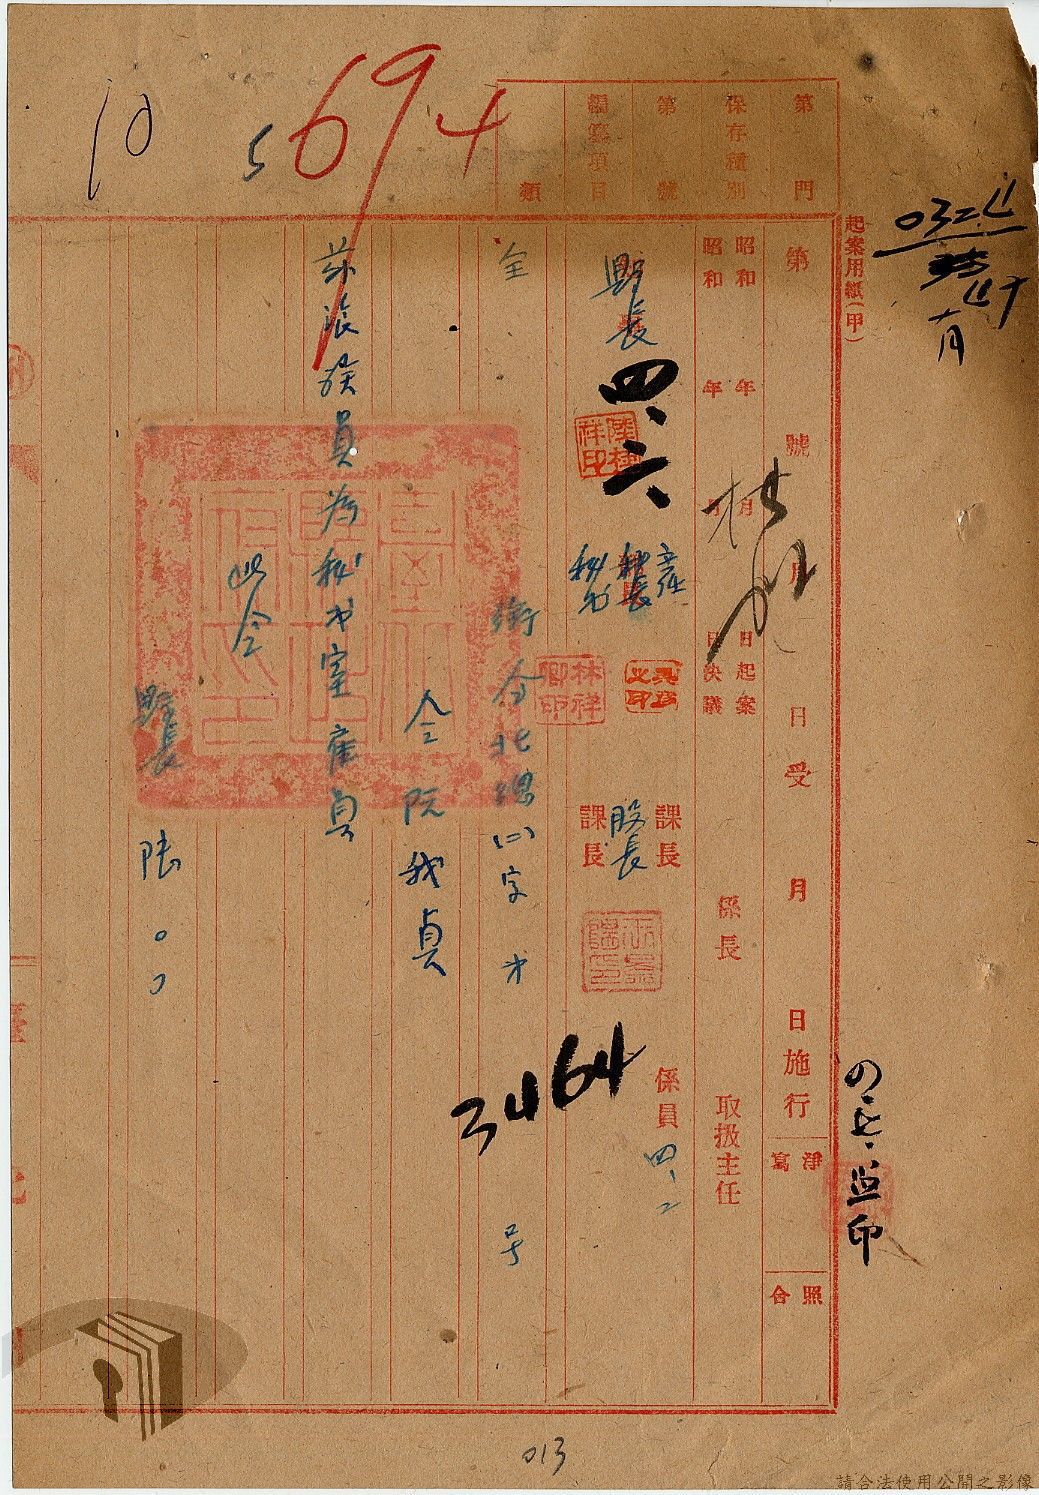 694
5
10
032.4
十月
起案用紙(甲)
第 門
保存種別
第 號
編寫項目
類
第 號
日受 月 日施行
淨寫
照合
昭和 年 月 日起案
昭和 年 月 日決議
係長
取扱主任
縣長
四、六
主任秘長
秘書
林祥卿印
課長
股長
課長
係員
四、二
監印
全 銜令 北 字第 3464 号
令 阮我貞
茲派該員為秘書室雇員
此令
縣長 陸。。
013
請合法使用公開之影像